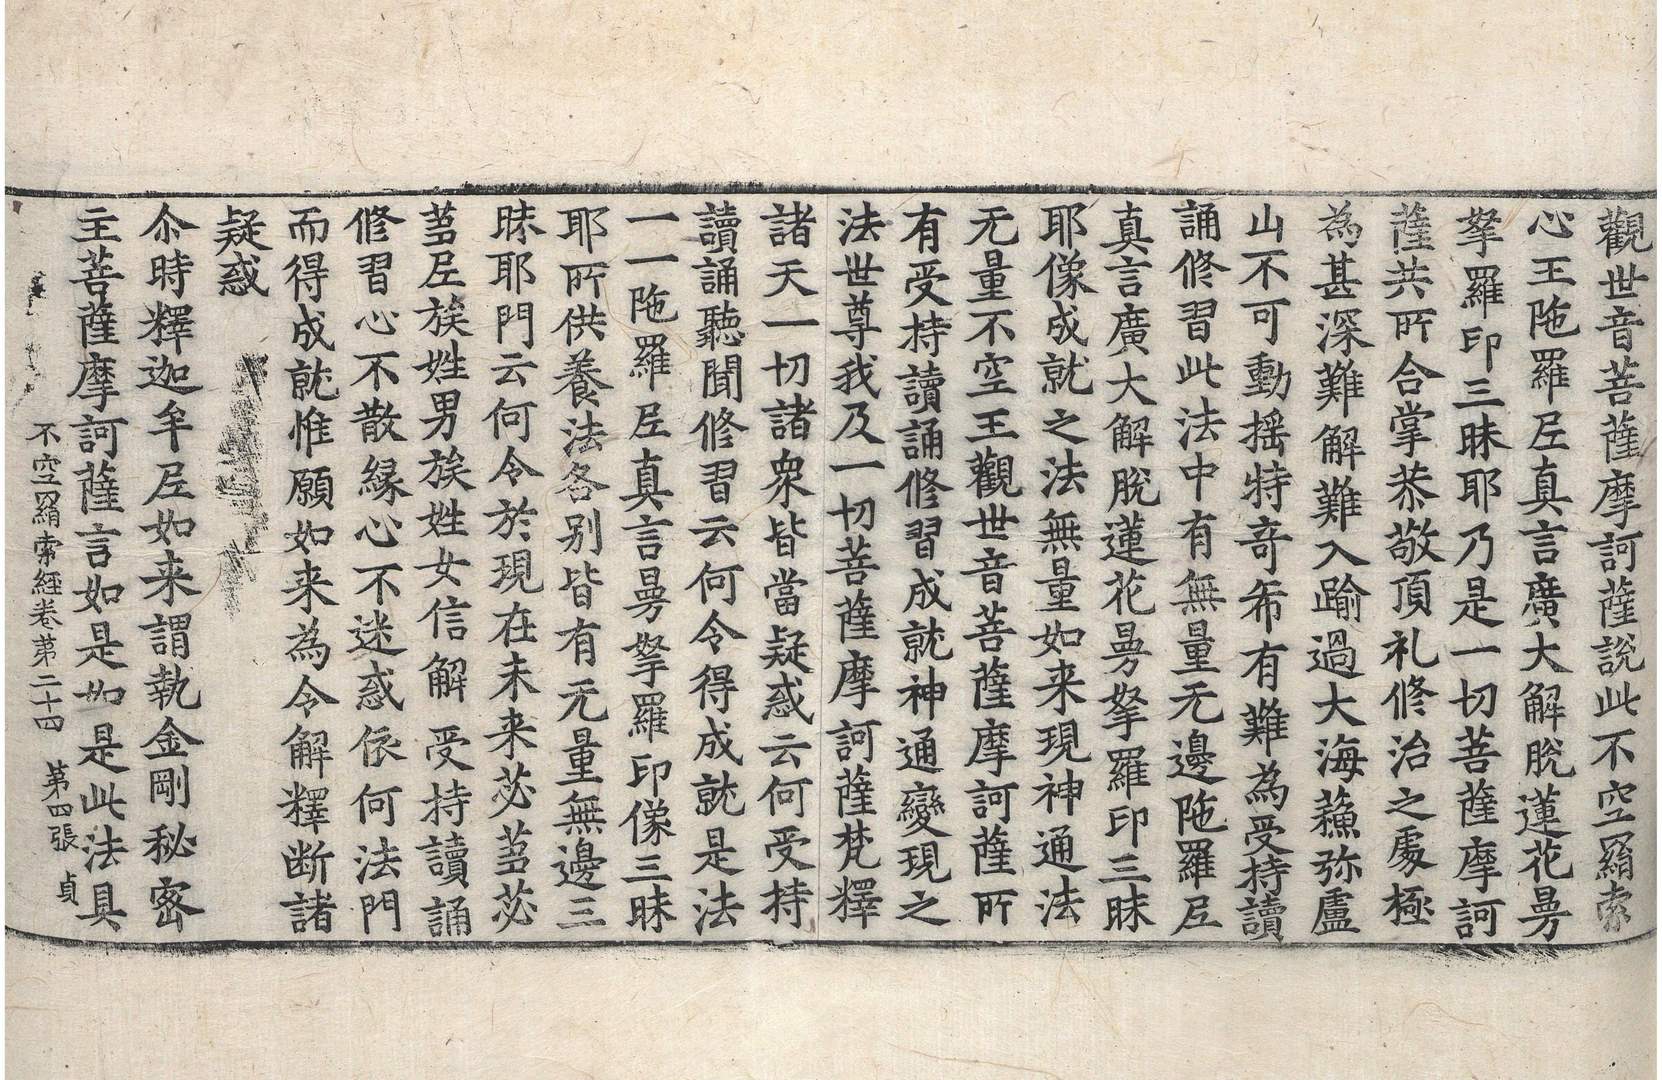 觀世音菩薩摩訶薩說此不空羂索
心王陁羅尼真言廣大解脫蓮花曼
拏羅印三昧耶乃是一切菩薩摩訶
薩共所合掌恭敬頂礼修治之處極
為甚深難解難入踰過大海蘓弥盧
山不可動摇特竒希有難為受持讀
誦修習此法中有無量无邊陁羅尼
真言廣大解脫蓮花曼拏羅印三昧
耶像成就之法無量如来現神通法
无量不空王觀世音菩薩摩訶薩所
有受持讀誦修習成就神通變現之
法世尊我及一切菩薩摩訶薩梵釋
諸天一切諸衆皆當疑惑云何受持
讀誦聽聞修習云何令得成就是法
一一陁羅尼真言曼拏羅印像三昧
耶所供養法各别皆有无量無邊三
昧耶門云何令於現在未来苾蒭苾
蒭尼族姓男族姓女信解受持讀誦
修習心不散緣心不迷惑依何法門
而得成就惟願如来為令解釋断諸
疑惑
尒時釋迦牟尼如来謂執金剛秘密
主菩薩摩訶薩言如是如是此法具
不空羂索經卷第二十四 第四張 貞